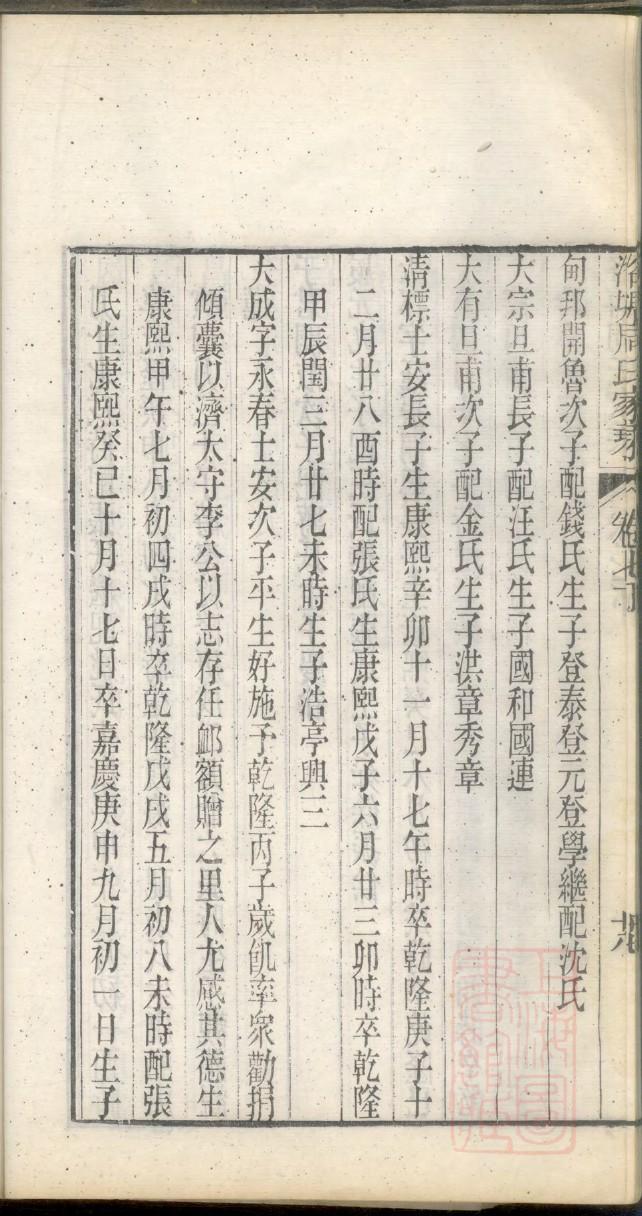 洛城周氏家乘 卷七下 六
甸邦開魯次子配錢氏生子登泰登元登學繼配沈氏
大宗旦甫長子配汪氏生子國和國連
大有旦甫次子配金氏生子洪章秀章
清標士安長子生康熙辛卯十一月十七午時卒乾隆庚子十
二月廿八酉時配張氏生康熙戊子六月廿三卯時卒乾隆
甲辰閏三月廿七未時生子浩亭興三
大成字永春士安次子平生好施予乾隆丙子歲飢率衆勸捐
傾囊以濟太守李公以志存任衈額贈之里人尤感其德生
康熙甲午七月初四戌時卒乾隆戊戌五月初八未時配張
氏生康熙癸巳十月十七日卒嘉慶庚申九月初一日生子